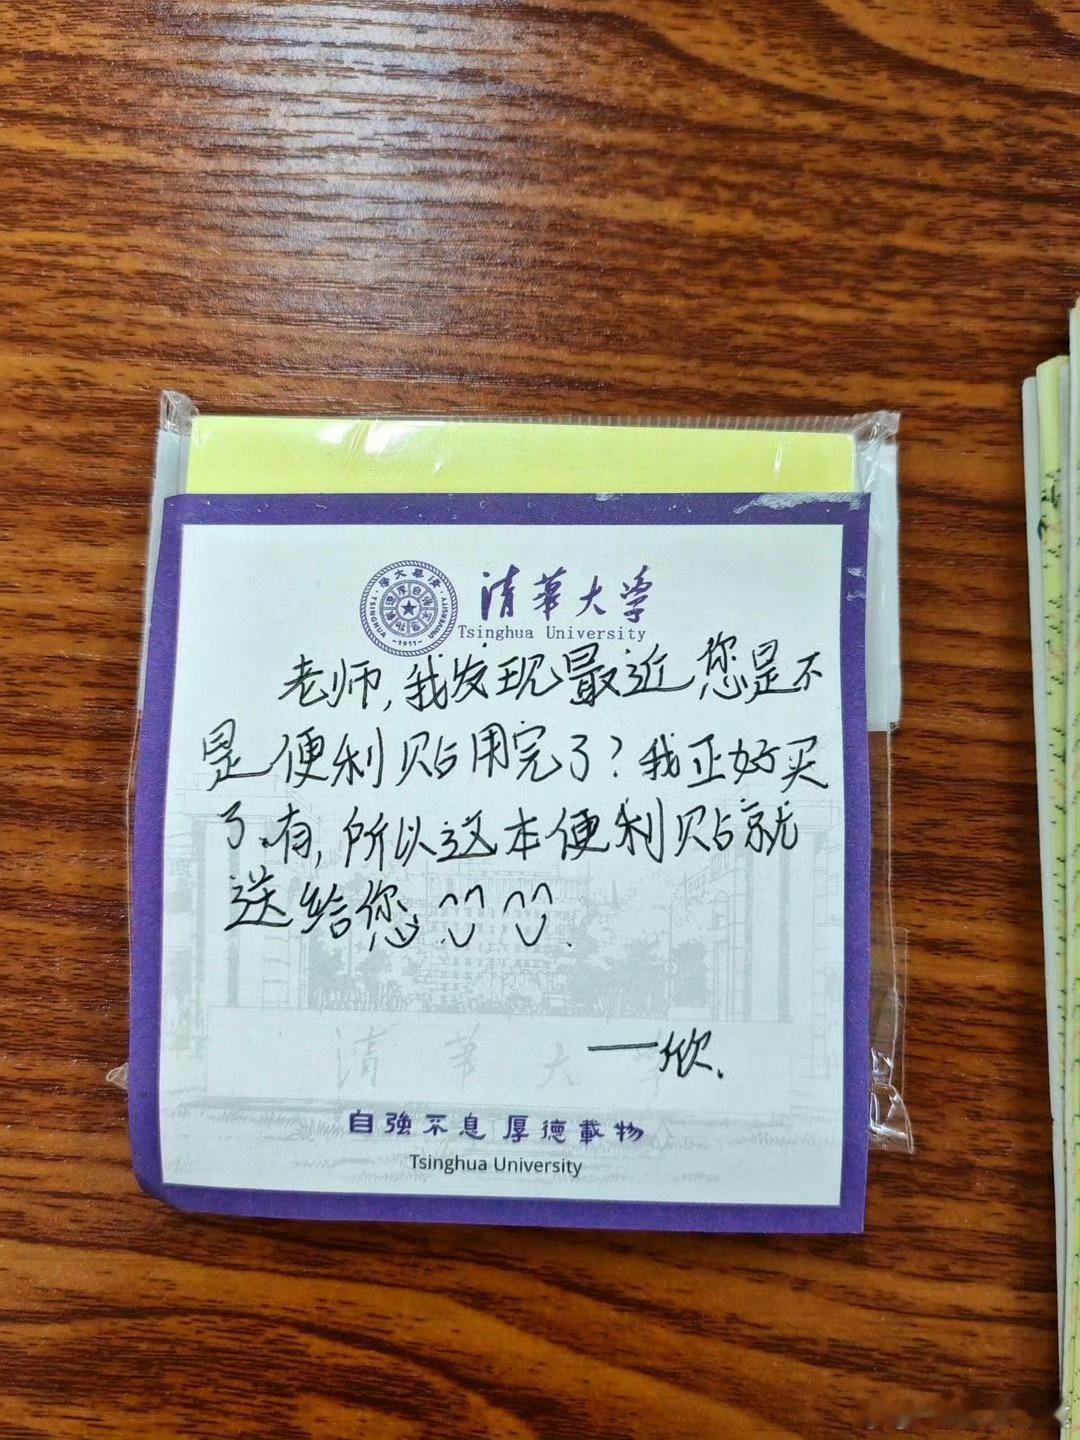 清華大学
Tsinghua University
老师,我发现最近您是不
是便利贴用完了?我正好买
了、有,所以这本便利贴就
送给您
——欣.
清華大
自強不息 厚德載物
Tsinghua University